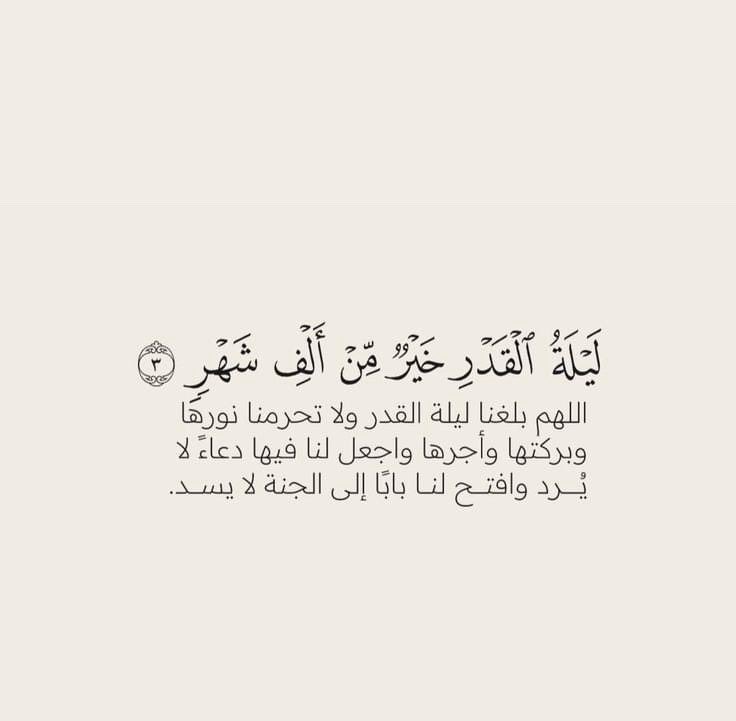 لَيْلَةُ ٱلْقَدْرِ خَيْرٌ مِّنْ أَلْفِ شَهْرٍ ٣
اللهم بلغنا ليلة القدر ولا تحرمنا نورها
وبركتها وأجرها واجعل لنا فيها دعاءً لا
يُــرد وافتــح لنـا بابًا إلى الجنة لا يسـد.